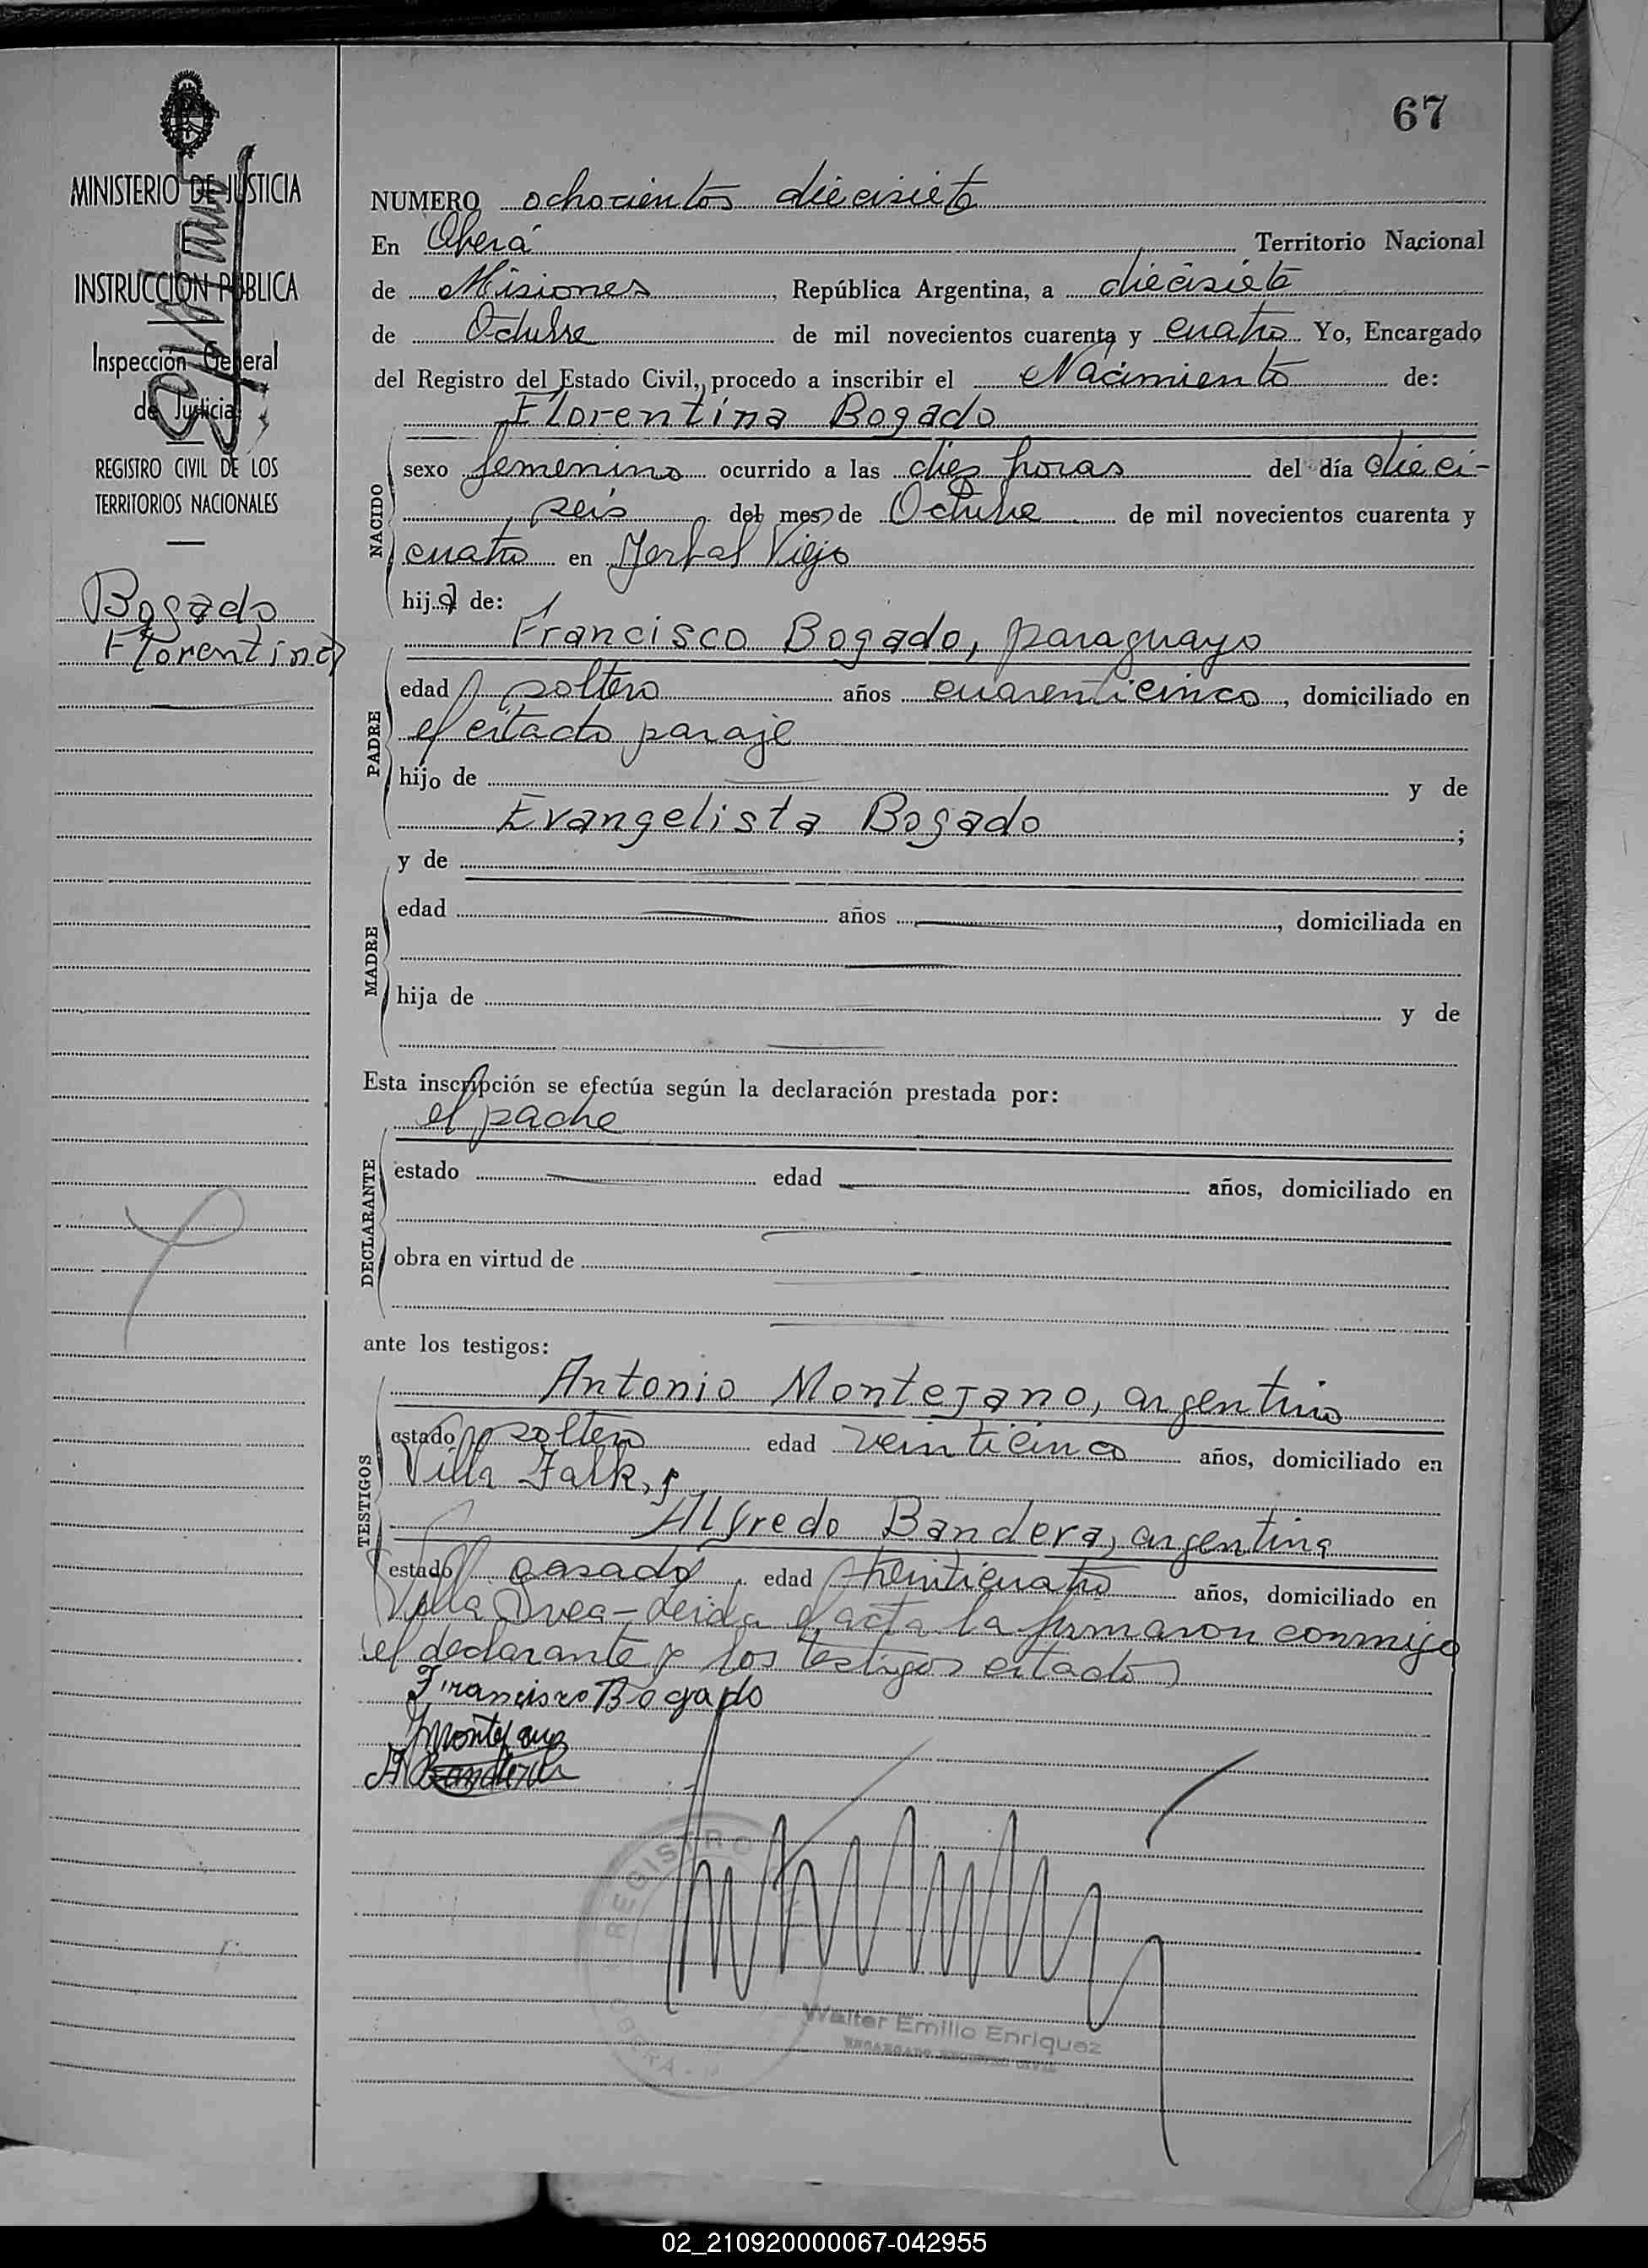 67
MINISTERIO DE JUSTICIA
E
INSTRUCCION PUBLICA
Inspección General
de Justicia
REGISTRO CIVIL DE LOS
TERRITORIOS NACIONALES
Bogado
Florentina
NUMERO ochocientos diecisiete
En Oberá Territorio Nacional
de Misiones, República Argentina, a diecisiete
de Octubre de mil novecientos cuarenta y cuatro Yo, Encargado
del Registro del Estado Civil, procedo a inscribir el Nacimiento de:
Florentina Bogado
NACIDO
sexo femenino ocurrido a las diez horas del día dieci-
seis del mes de Octubre de mil novecientos cuarenta y
cuatro en Yerbal Viejo
hija de:
Francisco Bogado, paraguayo
PADRE
edad soltero años cuarenticinco, domiciliado en
el citado paraje
hijo de y de
Evangelista Bogado;
y de
MADRE
edad años, domiciliada en
hija de y de
Esta inscripción se efectúa según la declaración prestada por:
el padre
DECLARANTE
estado edad años, domiciliado en
obra en virtud de
ante los testigos:
Antonio Montejano, argentino
TESTIGOS
estado soltero edad veinticinco años, domiciliado en
Villa Falk, y
Alfredo Bandera, argentina
estado casado edad treinticuatro años, domiciliado en
Villa Svea - Leida el acta la firmaron conmigo
el declarante y los testigos citados
Francisco Bogado
Montejano
A Bandera
REGISTRO CIVIL
OBERA
Walter Emilio Enriquez
ENCARGADO REGISTRO CIVIL
02_210920000067-042955